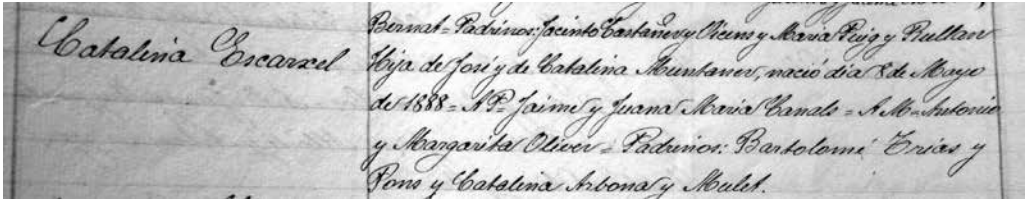 Bernat = Padrinos: Jacinto Castañer y Vicens y Maria Puig y Rullan
Catalina Escarxel
Hija de José y de Catalina Muntaner, nació dia 8 de Mayo
de 1888 = A. P. = Jaime y Juana Maria Canals = A. M. = Antonio
y Margarita Oliver = Padrinos: Bartolomé Trias y
Pons y Catalina Arbona y Mulet.